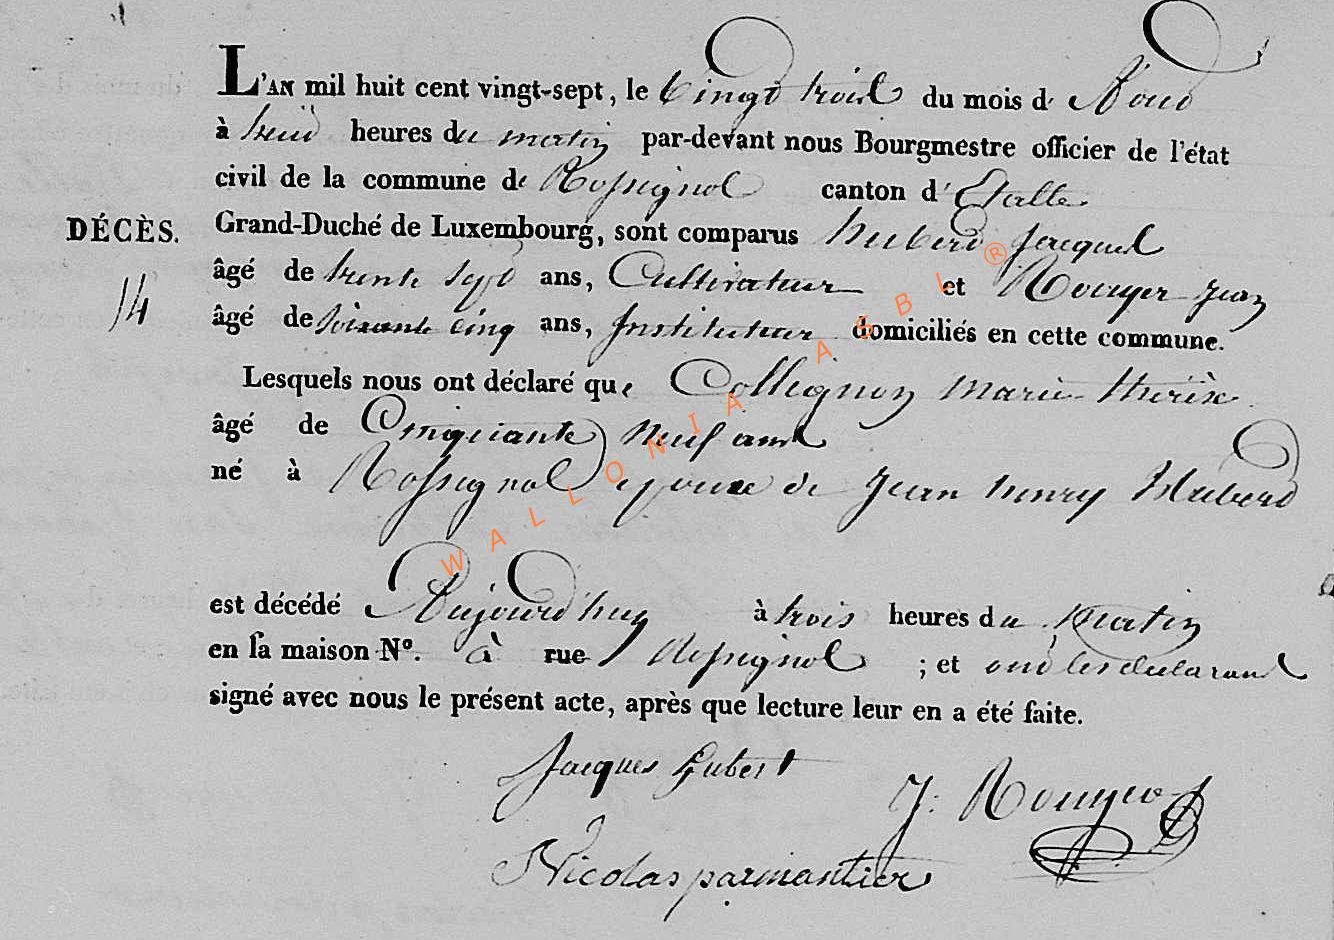 L'AN mil huit cent vingt-sept, le Vingt trois du mois d' Aout
à huit heures du matin par-devant nous Bourgmestre officier de l'état
civil de la commune de Rossignol canton d'Etalle
DÉCÈS.
Grand-Duché de Luxembourg, sont comparus hubert Jacques
14
âgé de trente sept ans, Cultivateur et Rouyer Jean
âgé de soixante cinq ans, Instituteur domiciliés en cette commune.
Lesquels nous ont déclaré que Collignon Marie therèse
âgé de Cinquante neuf ans
né à Rossignol epouse de Jean henry Hubert
est décédé Aujourd'huy à trois heures du Matin
en sa maison Nº. à rue Rossignol ; et ont les declarans
signé avec nous le présent acte, après que lecture leur en a été faite.
Jacques hubert
J. Rouyer
Nicolas parmantier
WALLONIA ASBL ®